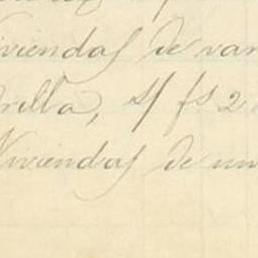 viviendas de var
rilla, s/ fs 2
Viviendas de un